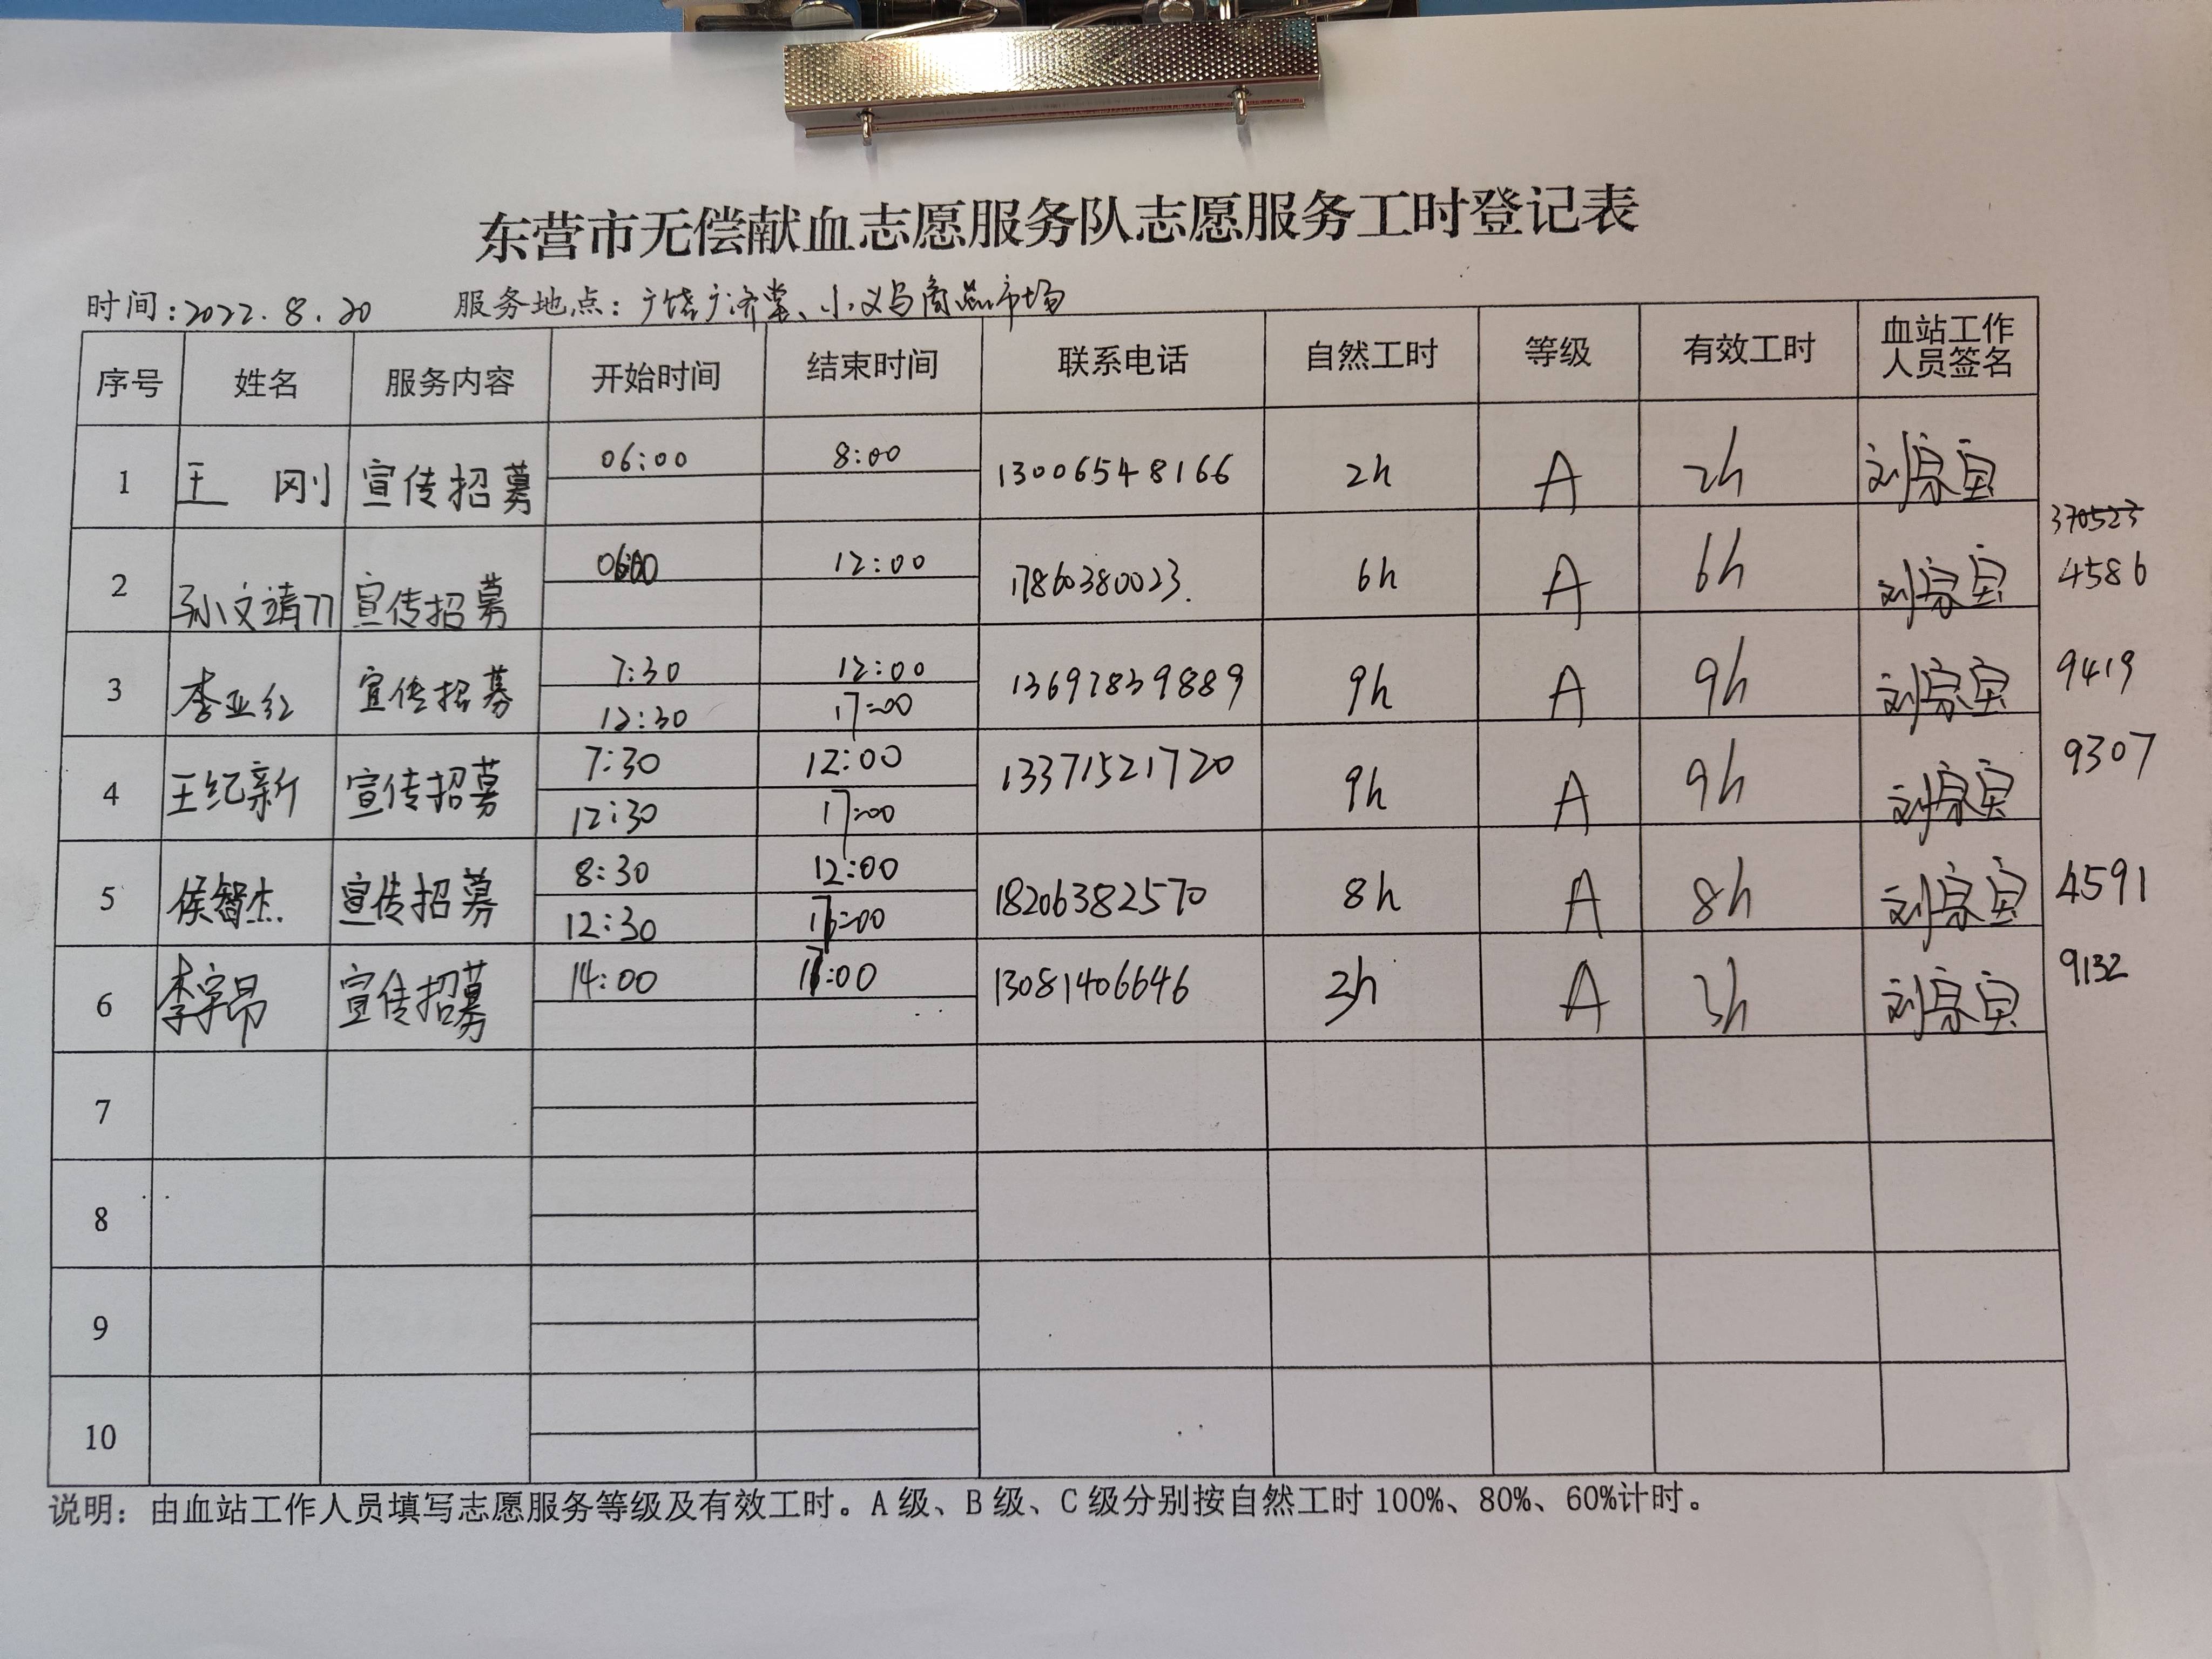 东营市无偿献血志愿服务队志愿服务工时登记表
时间:2022.8.20 服务地点：广饶广济堂、小义乌商品市场
序号 姓名 服务内容 开始时间 结束时间 联系电话 自然工时 等级 有效工时 血站工作人员签名
1 王 刚 宣传招募 06:00 8:00 13006548166 2h A 2h
370523
2 宣传招募 12:00 17860380023. 6h A 6h 4586
3 李亚红 宣传招募 7:30 12:00 13697839889 9h A 9h 9419
12:30 17:00
4 王纪新 宣传招募 7:30 12:00 13371521720 9h A 9h 9307
12:30 17:00
5 侯智杰 宣传招募 8:30 12:00 18206382570 8h A 8h 4591
12:30
6 李宇昂 宣传招募 14:00 13081406646 3h A 3h 9132
7
8
9
10
说明：由血站工作人员填写志愿服务等级及有效工时。A级、B级、C级分别按自然工时100%、80%、60%计时。